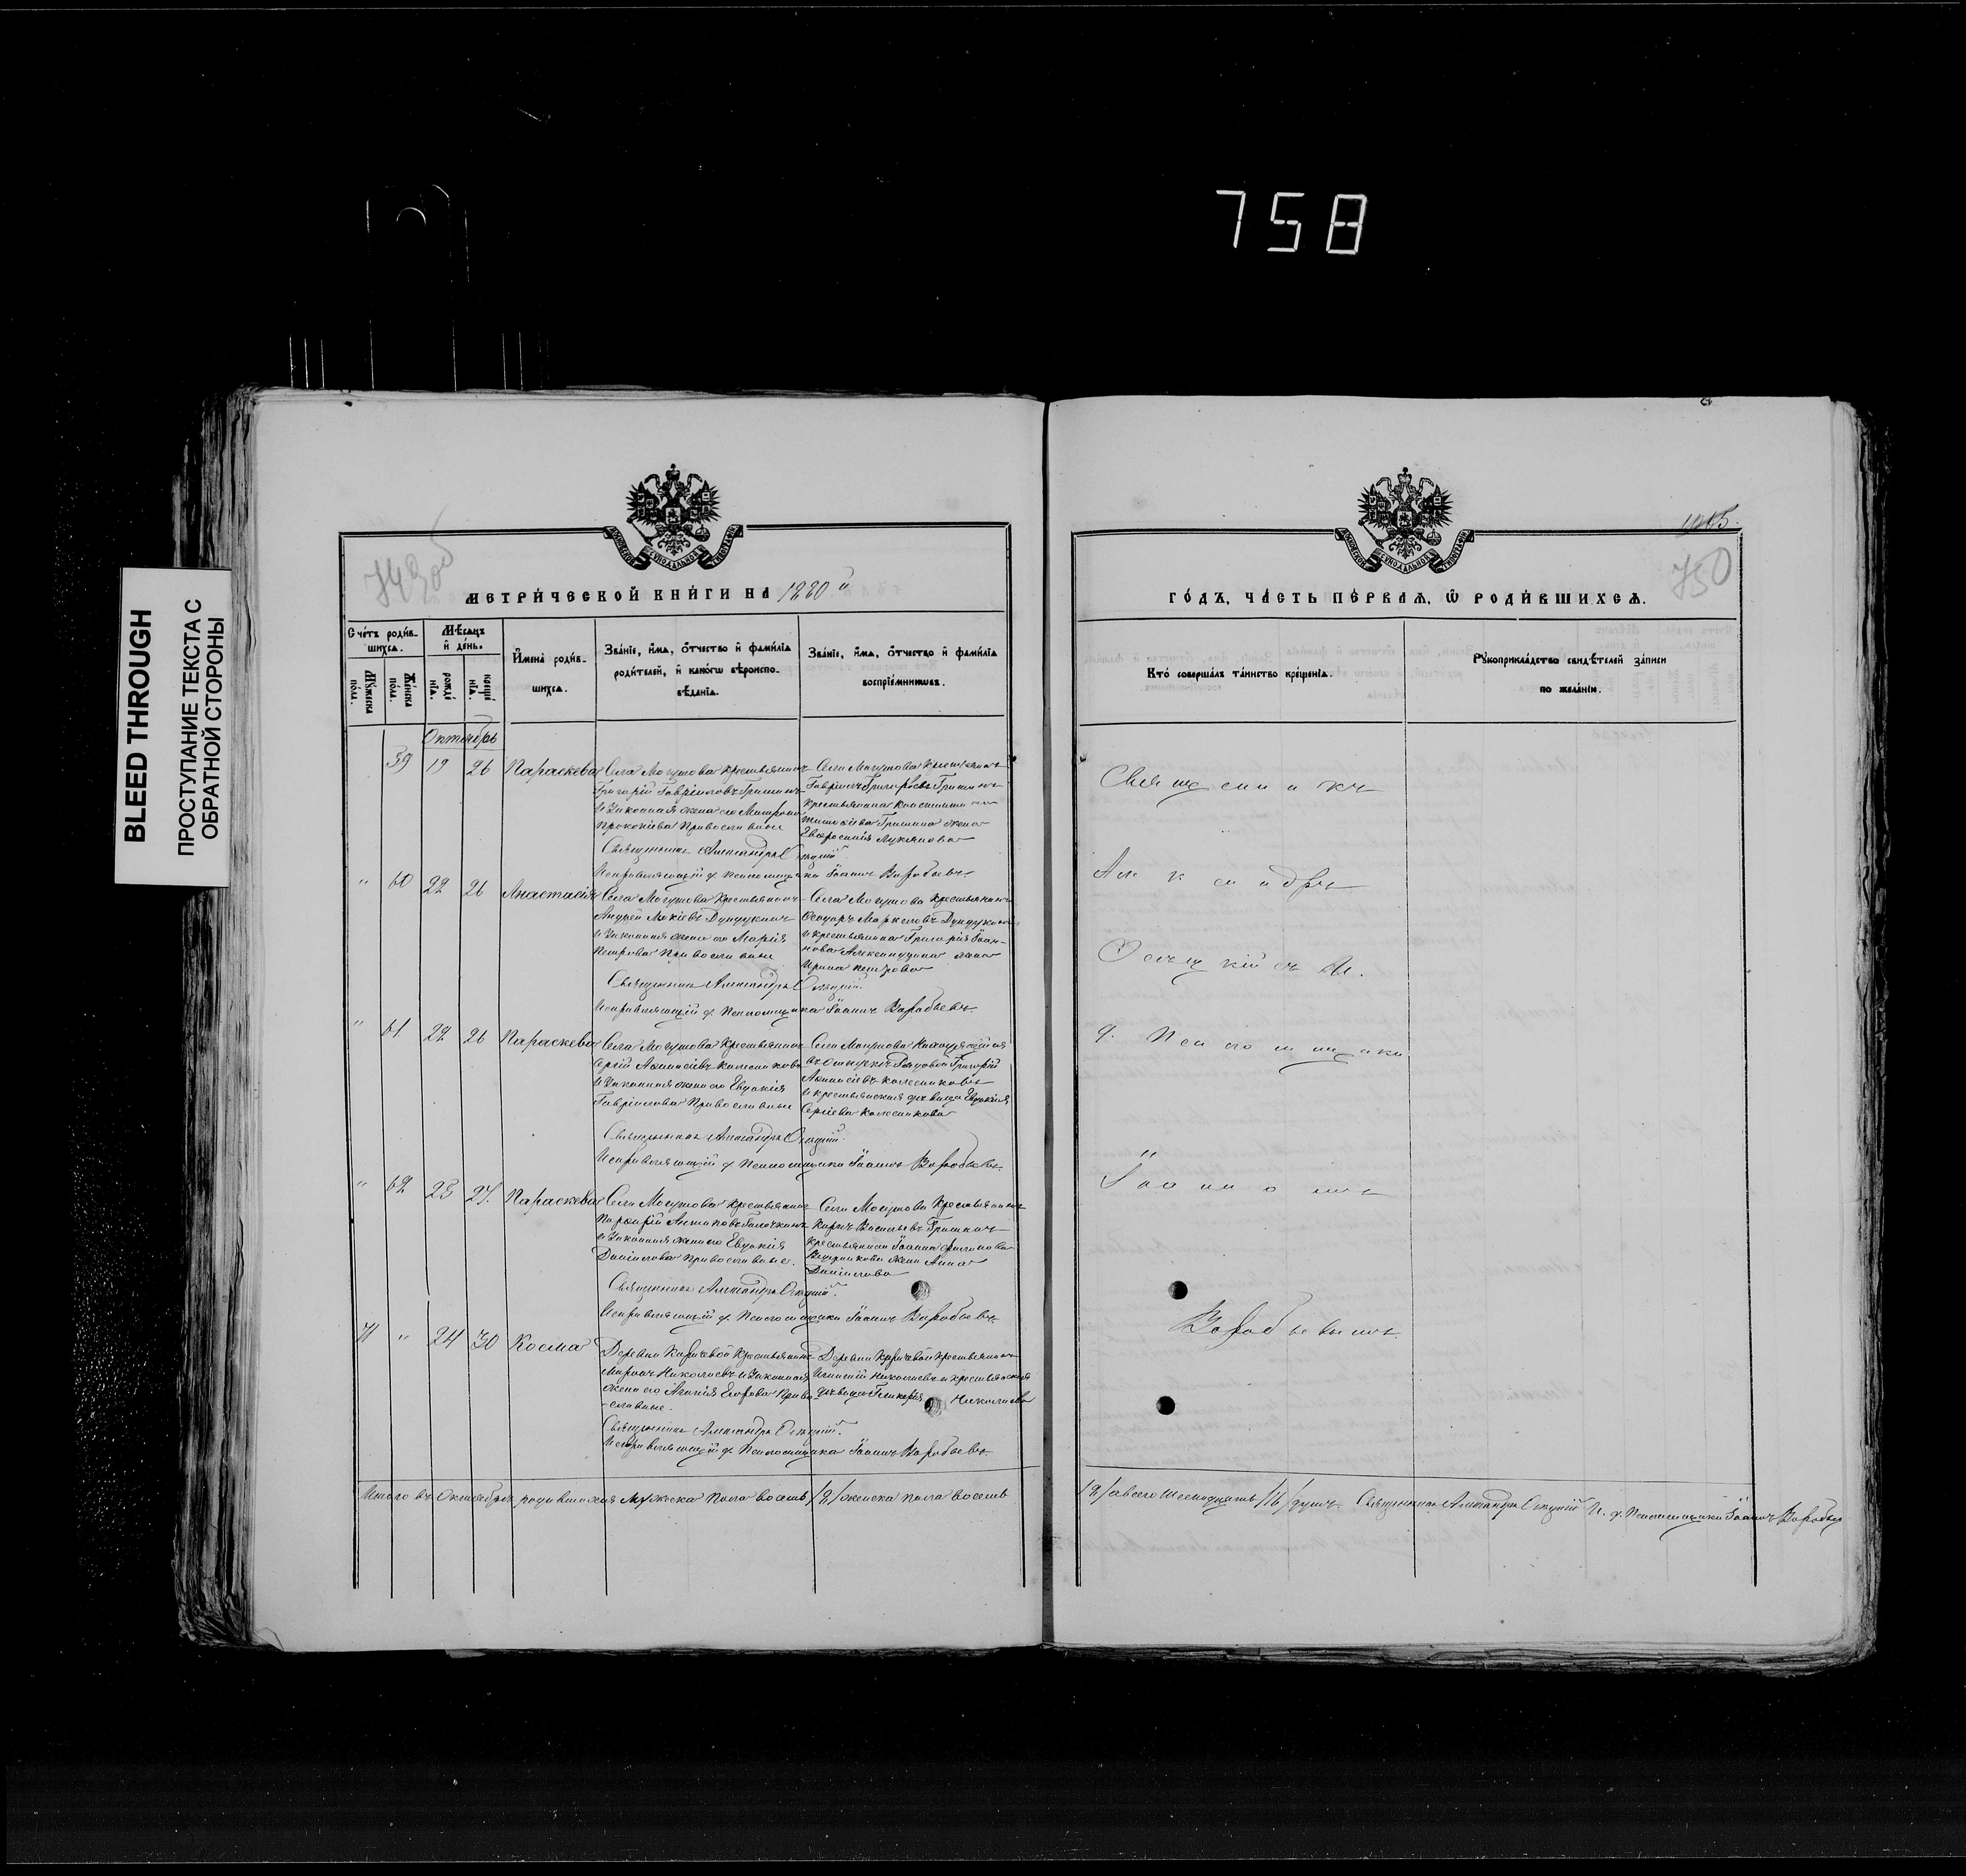 758
BLEED THROUGH
ПРОСТУПАНИЕ ТЕКСТА С
ОБРАТНОЙ СТОРОНЫ
749об
МЕТРИ́ЧЕСКОЙ КНИ́ГИ НА 1880 й
Сче́тъ роди́в-
шихсѧ.
Мꙋ́жеска по́ла.
Же́нска по́ла.
Мѣ́сѧцъ
и҆ де́нь.
рожде́нїѧ.
креще́нїѧ.
И҆мена̀ роди́в-
шихсѧ.
Зва́нїе, и҆́мѧ, ѻ҆́тчество и҆ фами́лїѧ
роди́телей, и҆ како́гѡ вѣроиспо-
вѣ́данїѧ.
Зва́нїе, и҆́мѧ, ѻ҆́тчество и҆ фами́лїѧ
воспрїе́мникѡвъ.
Октябрь
59 19 26 Параскева
Села Могутова крестьянинъ
Григорій Гавріиловъ Гришинъ
и законная жена его Матрона
Прокопіева православные
Села Могутова крестьянинъ
Гавріилъ Григорьевъ Гришинъ
крестьянина
Гришина жена
Евфросинія Лукиянова
Священникъ Александръ Осецкій
Исправляющій д. Псаломщика Іоаннъ Воробьевъ
" 60 22 26 Анастасія
Села Могутова крестьянинъ
Андрей Дундукинъ
и законная жена его Марія
Петрова православные
Села Могутова крестьянинъ
Ѳеодоръ Маркеловъ Дундукинъ
и крестьянина Григорія Іоан-
нова жена
Ирина Петрова
Священникъ Александръ Осецкій.
Исправляющій д. Псаломщика Іоаннъ Воробьевъ
" 61 22 26 Параскева
Села Могутова крестьянинъ
Сергій Аѳанасіевъ Колесниковъ
и законная жена его Евдокія
Гавріилова православные
Села Могутова находящійся
въ отпуску рядовой Григорій
Аѳанасіевъ Колесниковъ
и крестьянская дѣвица Евдокія
Сергіева Колесникова
Священникъ Александръ Осецкій.
Исправляющій д. Псаломщика Іоаннъ Воробьевъ.
" 62 23 27. Параскева
Села Могутова крестьянинъ
Порфирій Антиповъ
и законная жена его Евдокія
Даніилова православные.
Села Могутова крестьянинъ
Карпъ Васильевъ Гришинъ
крестьянина Іоанна Филипова
жена Анна
Даніилова
Священникъ Александръ Осецкій.
Исправляющій д. Псаломщика Іоаннъ Воробьевъ
71 " 24 30 Косма
Деревни крестьянинъ
Миронъ Николаевъ и законная
жена его Агапія Егорова право-
славные.
Деревни крестьянинъ
Николаевъ и крестьянская
дѣвица Гликерія Николаева
Священникъ Александръ Осецкій.
Исправляющій д. Псаломщика Іоаннъ Воробьевъ
Итого въ Октябрѣ родившихся мужеска пола восемь /8/ женска пола восемь
750
ГО́ДЪ, ЧА́СТЬ ПЕ́РВАѦ, Ѡ҆ РОДИ́ВШИХСѦ.
Кто̀ соверша́лъ та́инство креще́нїѧ.
Рꙋкоприкла́дство свидѣ́телей за́писи
по жела́нїю.
Священникъ
Александръ
Осецкій съ И.
д. Псаломщика
Іоанномъ
Воробьевымъ.
/8/ а всего шестнадцать /16/ душъ. Священникъ Александръ Осецкій И. д. Псаломщика Іоаннъ Воробьевъ